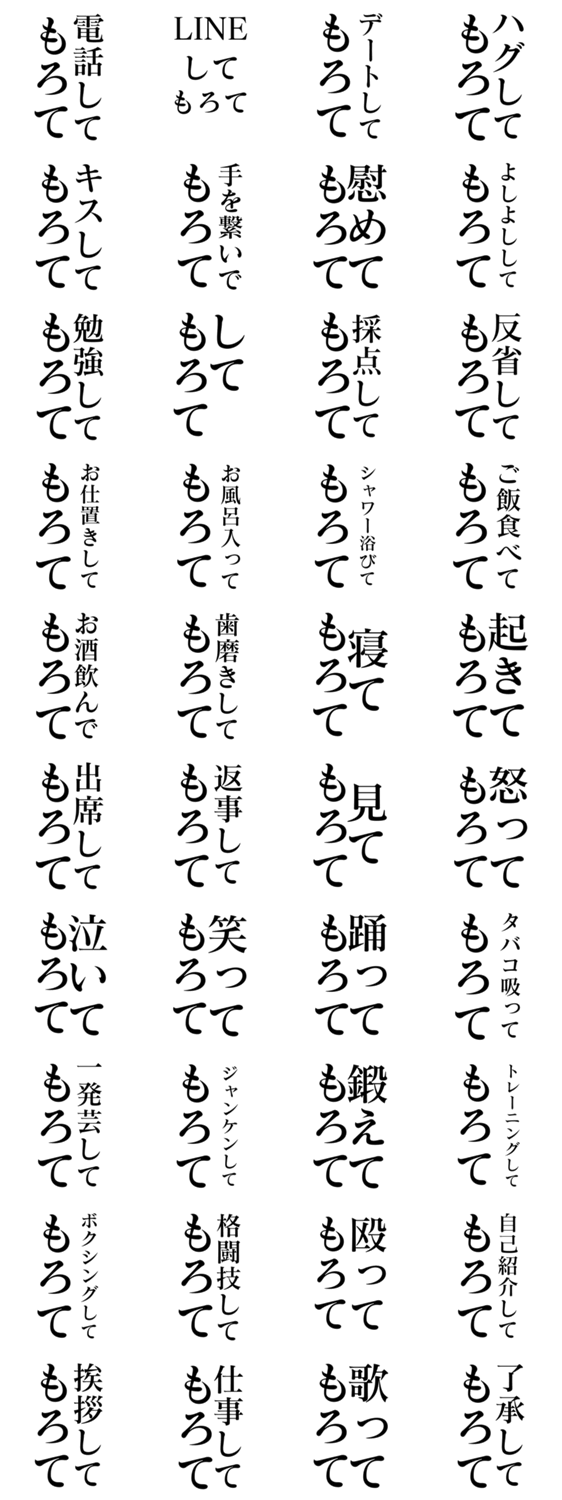 電話して
もろて
LINE
して
もろて
デートして
もろて
ハグして
もろて
キスして
もろて
手を繋いで
もろて
慰めて
もろて
よしよしして
もろて
勉強して
もろて
して
もろて
採点して
もろて
反省して
もろて
お仕置きして
もろて
お風呂入って
もろて
シャワー浴びて
もろて
ご飯食べて
もろて
お酒飲んで
もろて
歯磨きして
もろて
寝て
もろて
起きて
もろて
出席して
もろて
返事して
もろて
見て
もろて
怒って
もろて
泣いて
もろて
笑って
もろて
踊って
もろて
タバコ吸って
もろて
一発芸して
もろて
ジャンケンして
もろて
鍛えて
もろて
トレーニングして
もろて
ボクシングして
もろて
格闘技して
もろて
殴って
もろて
自己紹介して
もろて
挨拶して
もろて
仕事して
もろて
歌って
もろて
了承して
もろて